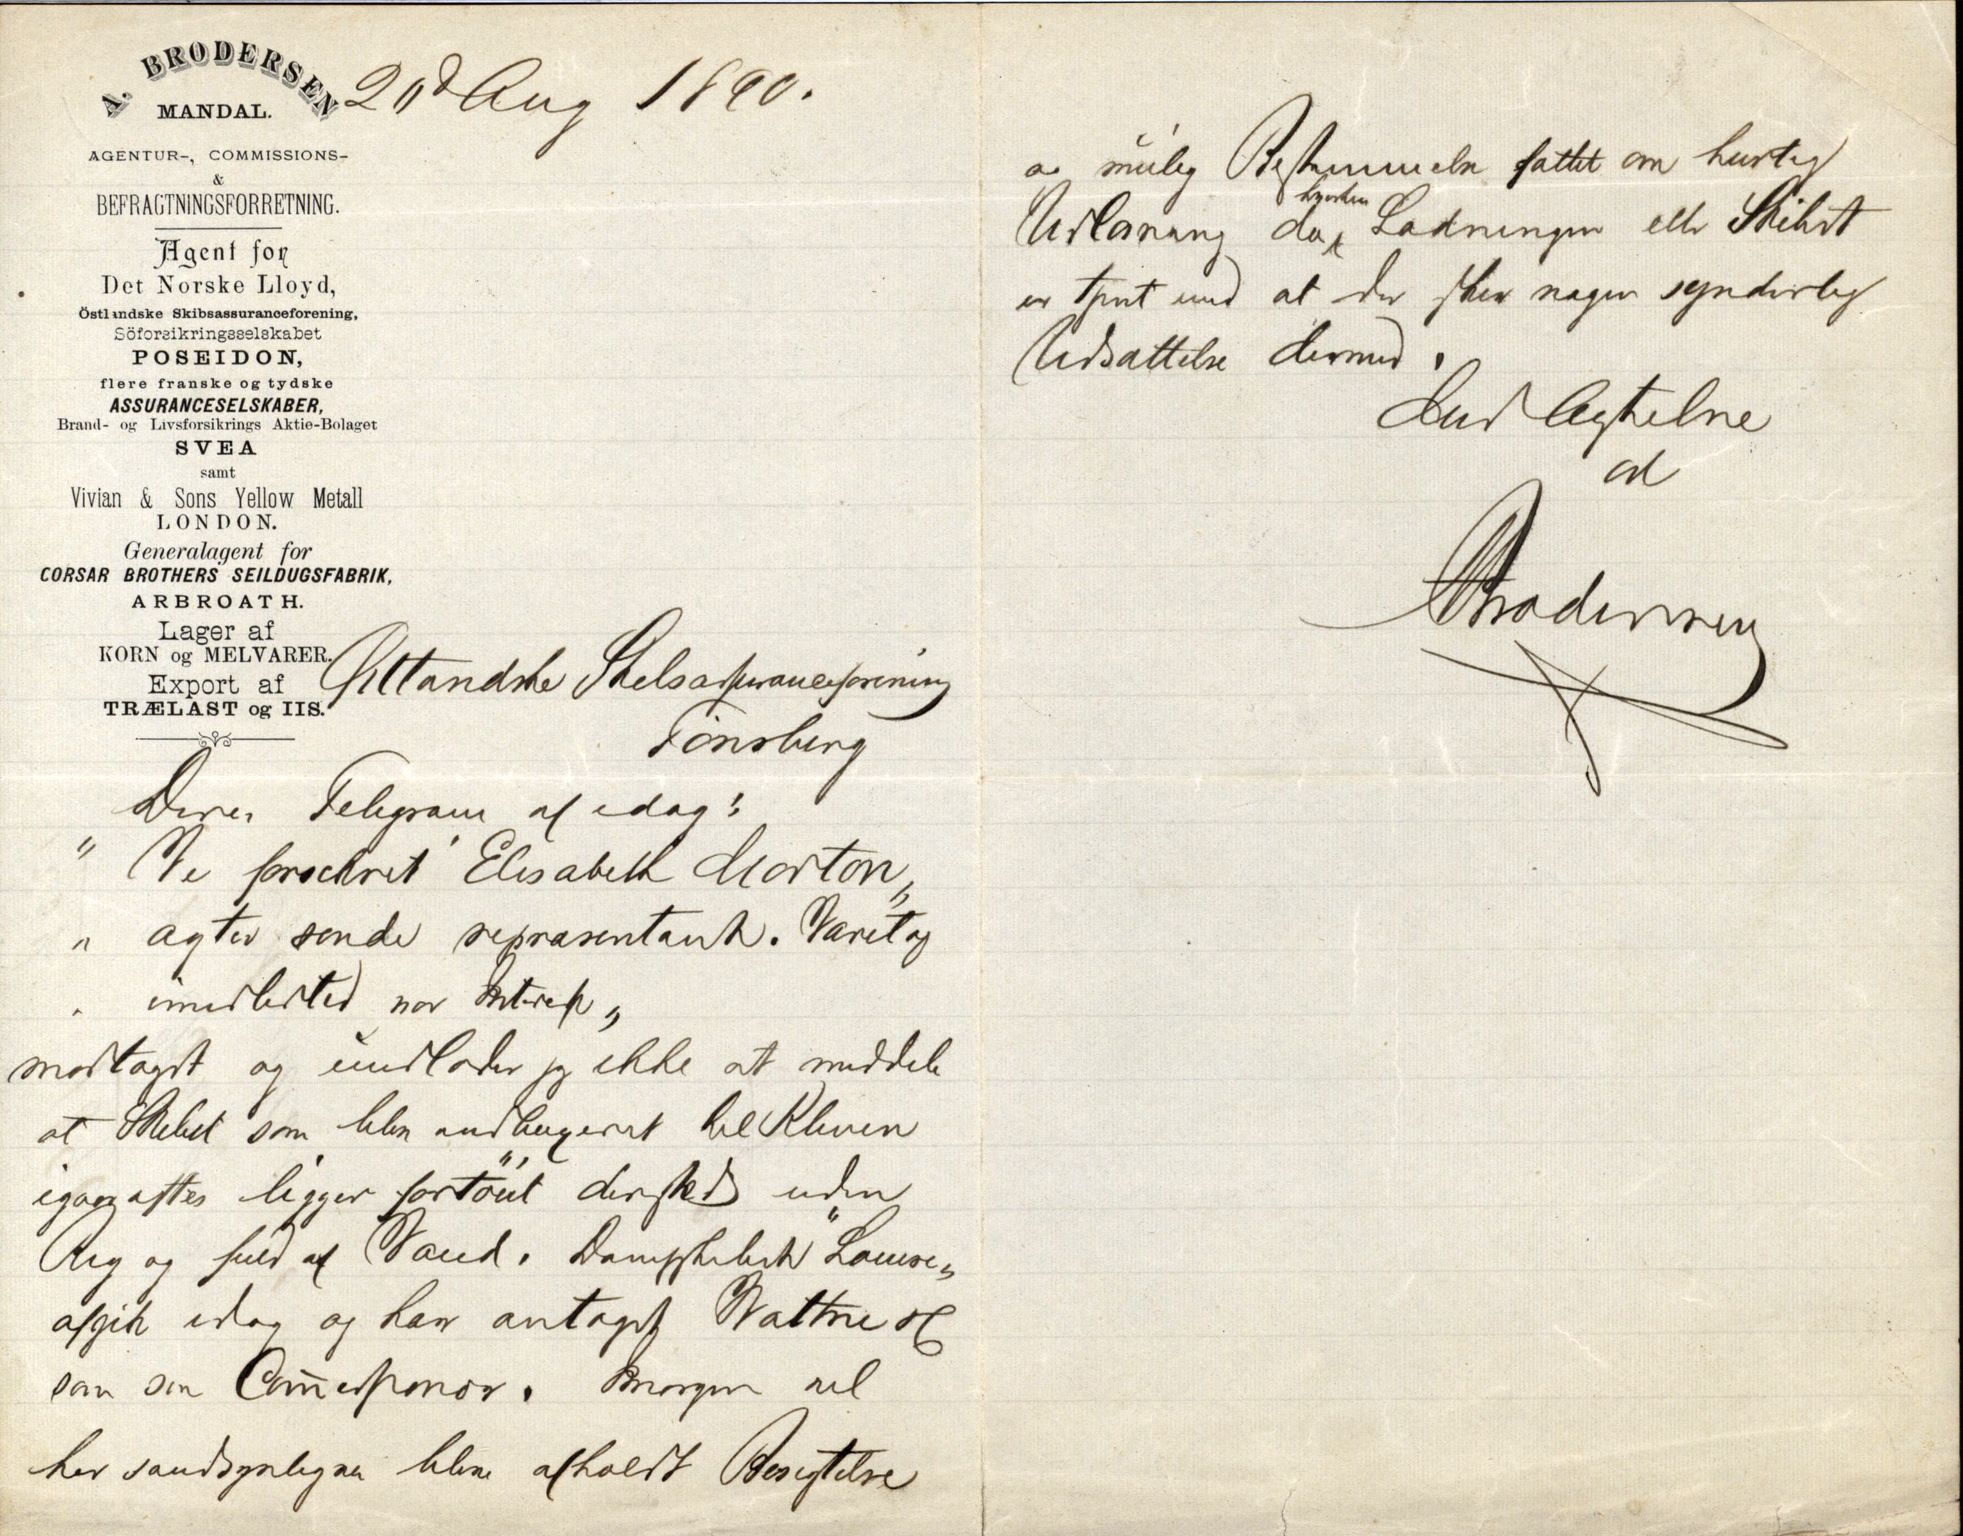 A. BRODERSEN
MANDAL.
AGENTUR-, COMMISSIONS-
&
BEFRAGTNINGSFORRETNING.
Agent for
Det Norske Lloyd,
Östlandske Skibsassuranceforening,
Söforsikringsselskabet
POSEIDON,
flere franske og tydske
ASSURANCESELSKABER,
Brand- og Livsforsikrings Aktie-Bolaget
SVEA
samt
Vivian & Sons Yellow Metall
LONDON.
Generalagent for
CORSAR BROTHERS SEILDUGSFABRIK,
ARBROATH.
Lager af
KORN og MELVARER.
Export af
TRÆLAST og IIS.
20d Aug 1890.
Östlandske Skibsassuranceforening
Tönsberg
Deres Telegram af idag:
" Vi forsikret Elisabeth Morton,
" agter sende repræsentant. Varetag
" imidlertid vor Interesse"
modtaget og undlader jeg ikke at meddele
at Skibet som blev indbugseret til Kleven
igaaraftes ligger fortöiet dersteds uden
Rig og fuld af Vand. Dampskibet "Louise"
afgik idag og har antaget Wattne
som sin Commissionær. Imorgen vil
her sandsynligvis blive afholdt Besigtelse
og mulig Bestemmelse fattet om hurtig
Udlosning da hverken Ladningen eller Skibet
er tjent med at der sker nogen synderlig
Udsættelse dermed.
Med Agtelse
A Brodersen